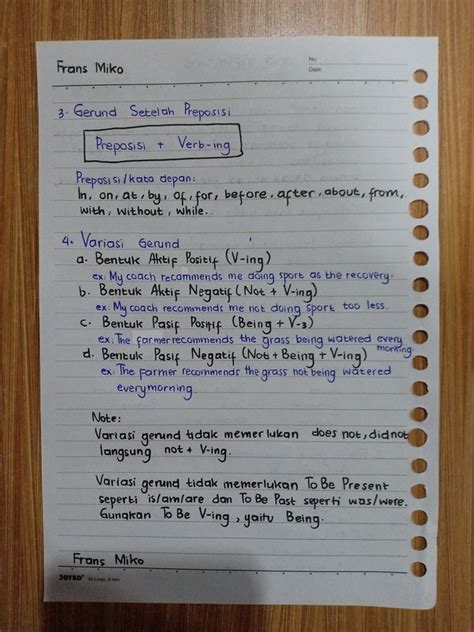 Frans Miko
No
Date
3. Gerund Setelah Preposisi
Preposisi + Verb-ing
Preposisi/kata depan:
In, on, at, by, of, for, before, after, about, from,
with, without, while.
4. Variasi Gerund
a. Bentuk Aktif Positif (V-ing)
ex: My coach recommends me doing sport as the recovery.
b. Bentuk Aktif Negatif (Not + V-ing)
ex: My coach recommends me not doing sport too less.
c. Bentuk Pasif Positif (Being + V-3)
ex: The farmer recommends the grass being watered every morning.
d. Bentuk Pasif Negatif (Not + Being + V-ing)
ex: The farmer recommends the grass not being watered
everymorning.
Note:
Variasi gerund tidak memerlukan does not, did not
langsung not + V-ing.
Variasi gerund tidak memerlukan To Be Present
seperti is/am/are dan To Be Past seperti was/were.
Gunakan To Be V-ing, yaitu Being.
Frans Miko
JOYKO